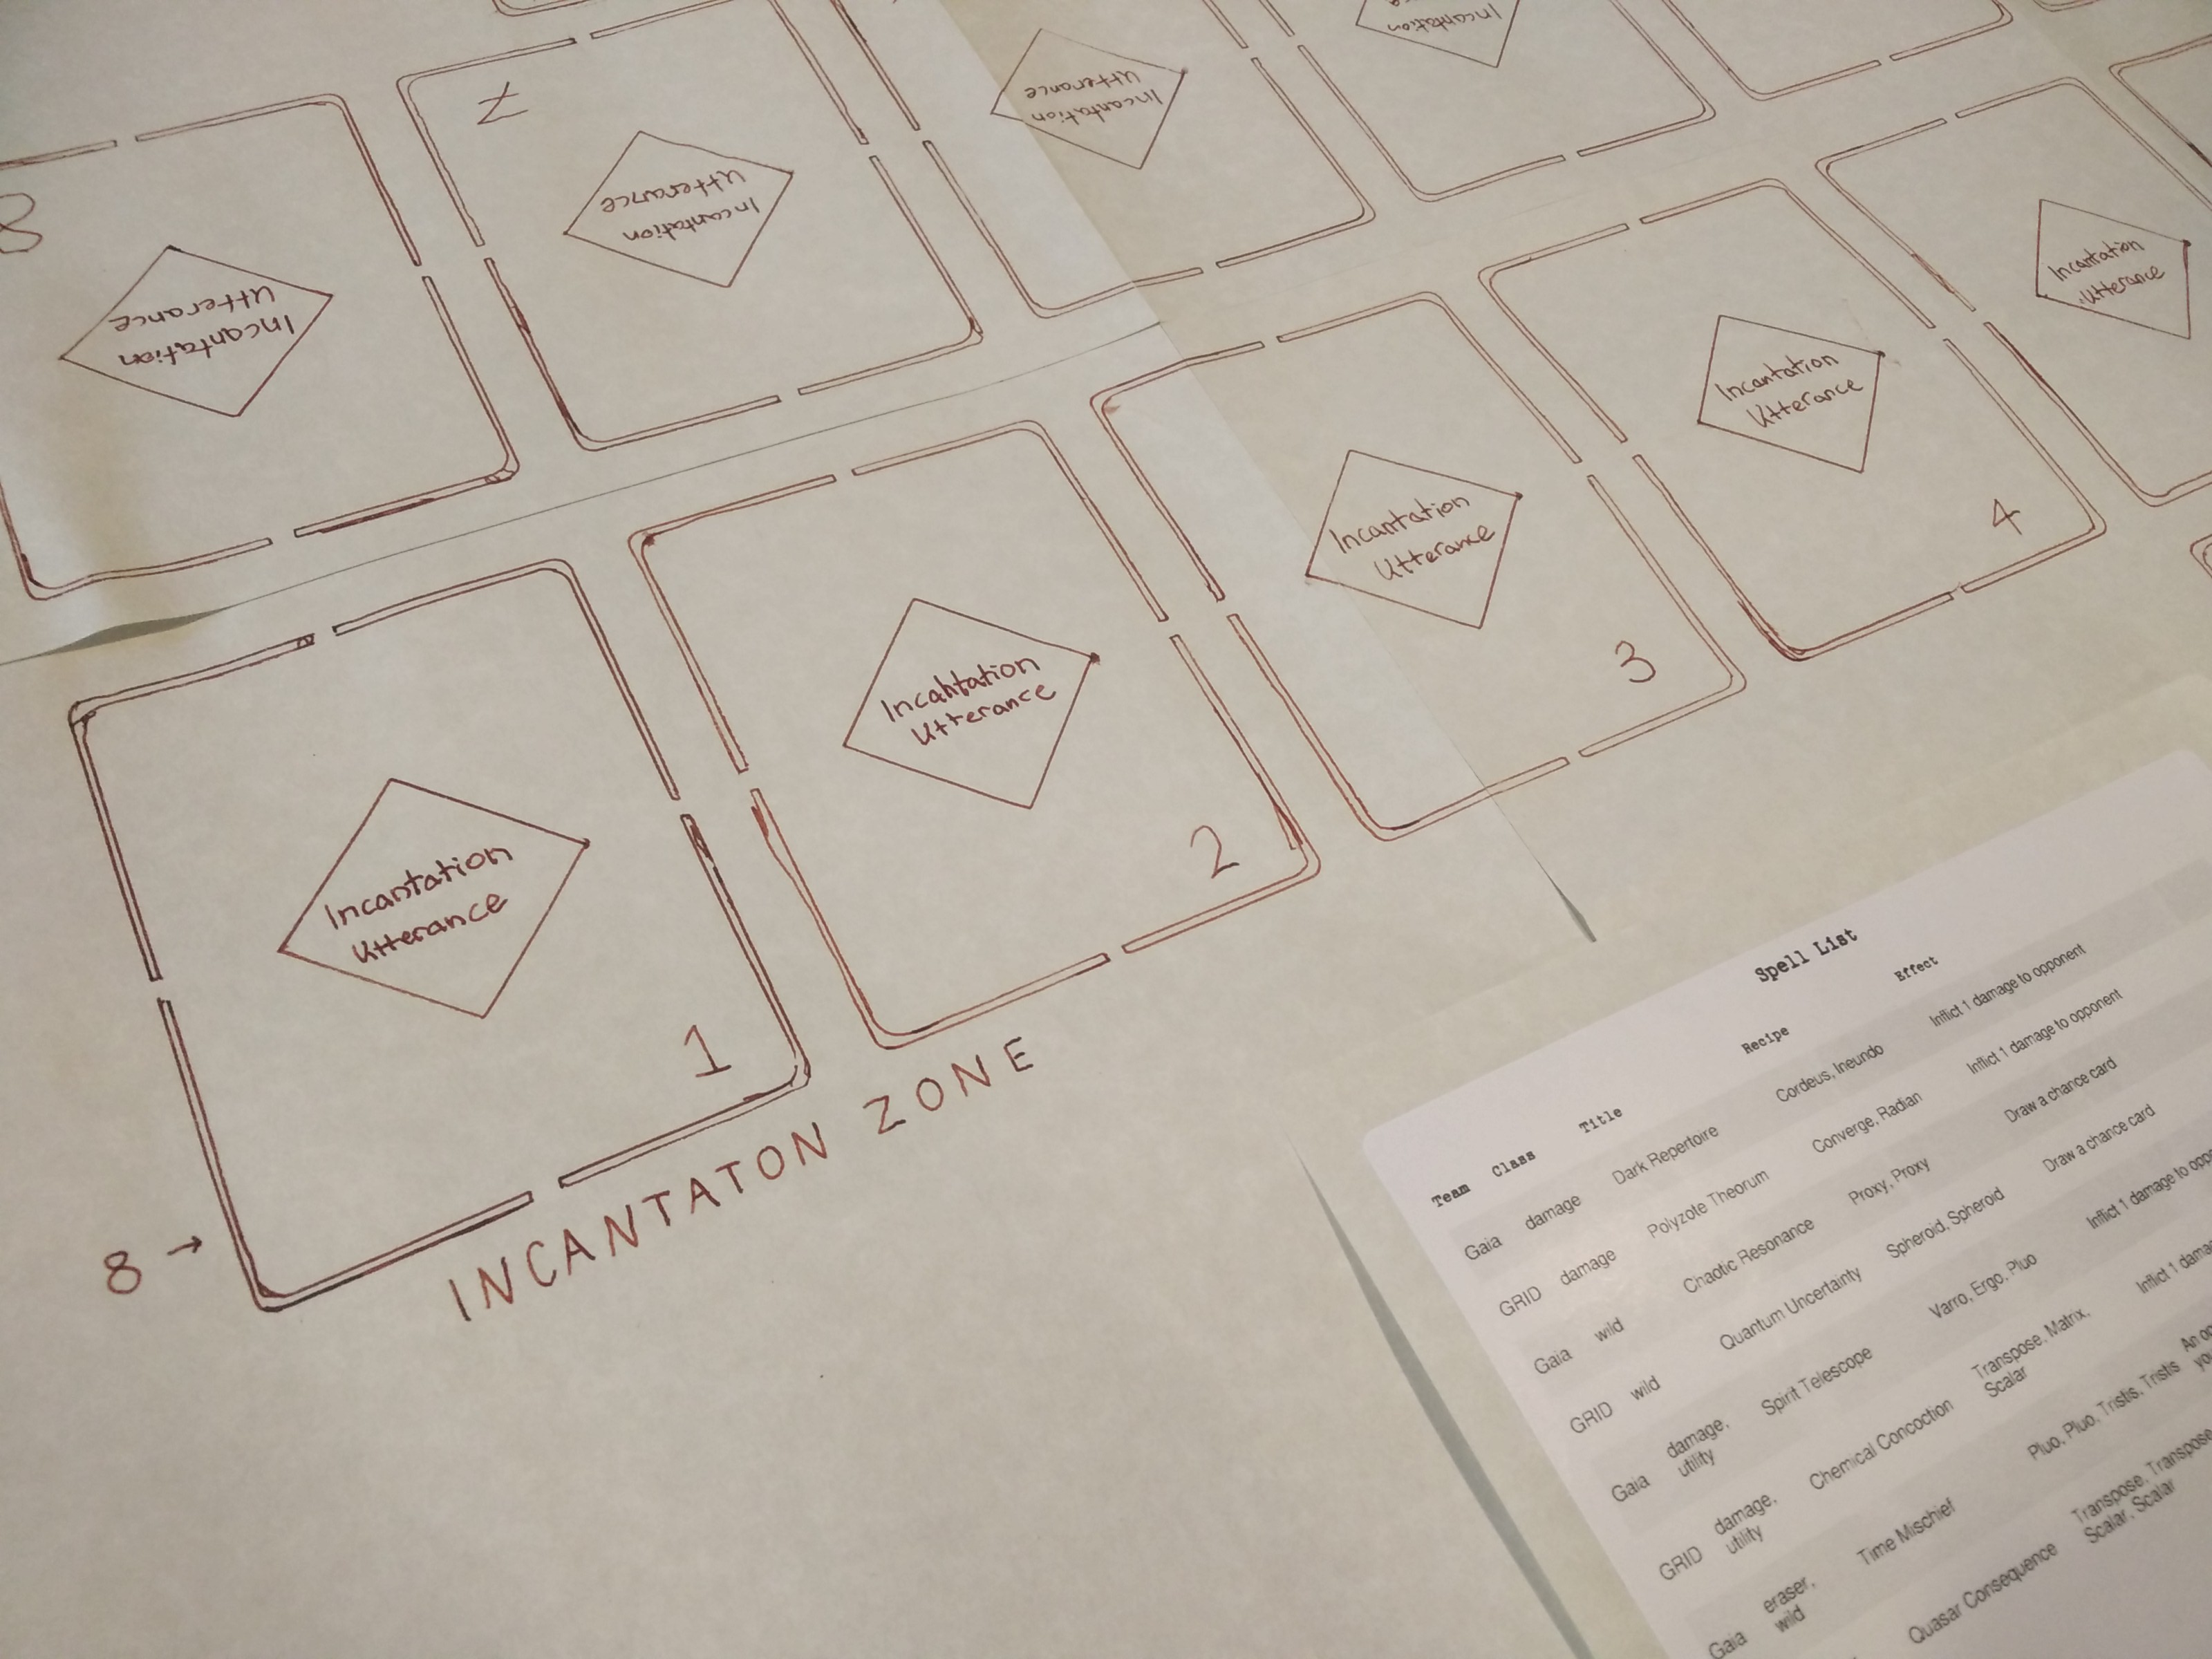 8
7
Incantation
Utterance
Incantation
Utterance
Incantation
Utterance
Incantation
Incantation
Utterance
1
Incantation
Utterance
2
Incantation
Utterance
3
Incantation
Utterance
4
Incantation
Utterance
8 →
INCANTATON ZONE
Spell List
Team Class Title Recipe Effect
Gaia damage Dark Repertoire Cordeus, Ineundo Inflict 1 damage to opponent
GRID damage Polyzote Theorum Converge, Radian Inflict 1 damage to opponent
Gaia wild Chaotic Resonance Proxy, Proxy Draw a chance card
GRID wild Quantum Uncertainty Spheroid, Spheroid Draw a chance card
Gaia damage, utility Spirit Telescope Varro, Ergo, Pluo Inflict 1 damage to
GRID damage, utility Chemical Concoction Transpose, Matrix, Scalar Inflict 1
Gaia eraser, wild Time Mischief Pluo, Pluo, Tristis, Tristis An
Quasar Consequence Transpose, Transpose Scalar, Scalar